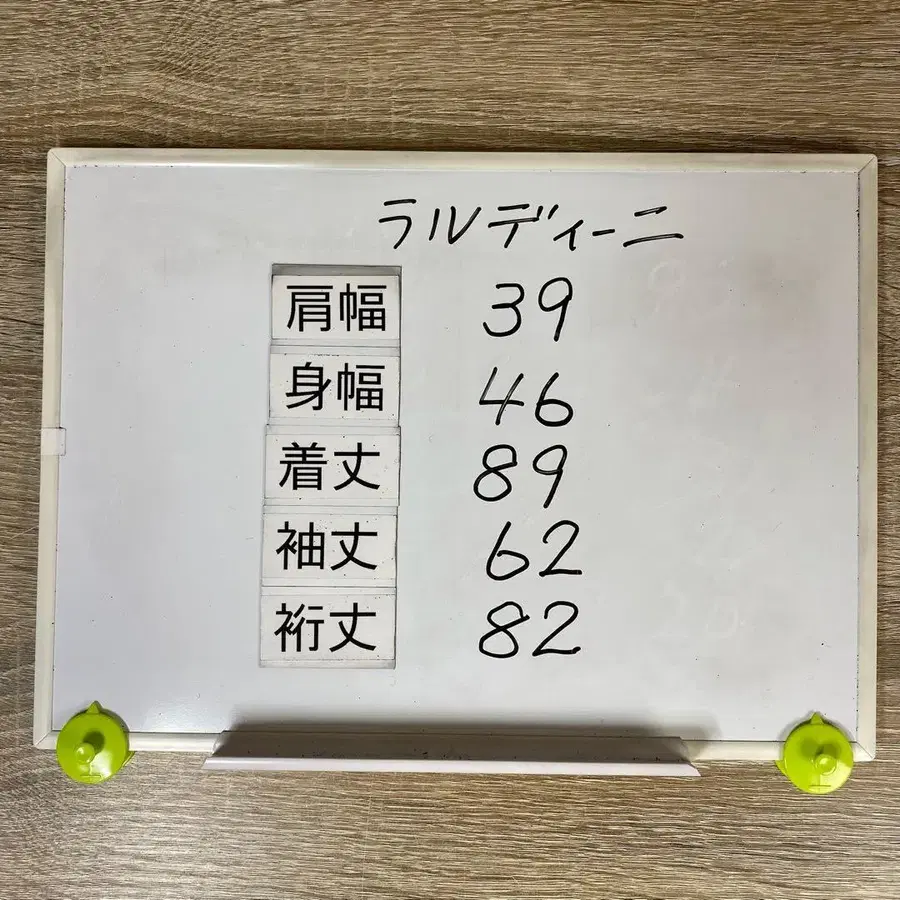 ラルディーニ
肩幅 39
身幅 46
着丈 89
袖丈 62
裄丈 82